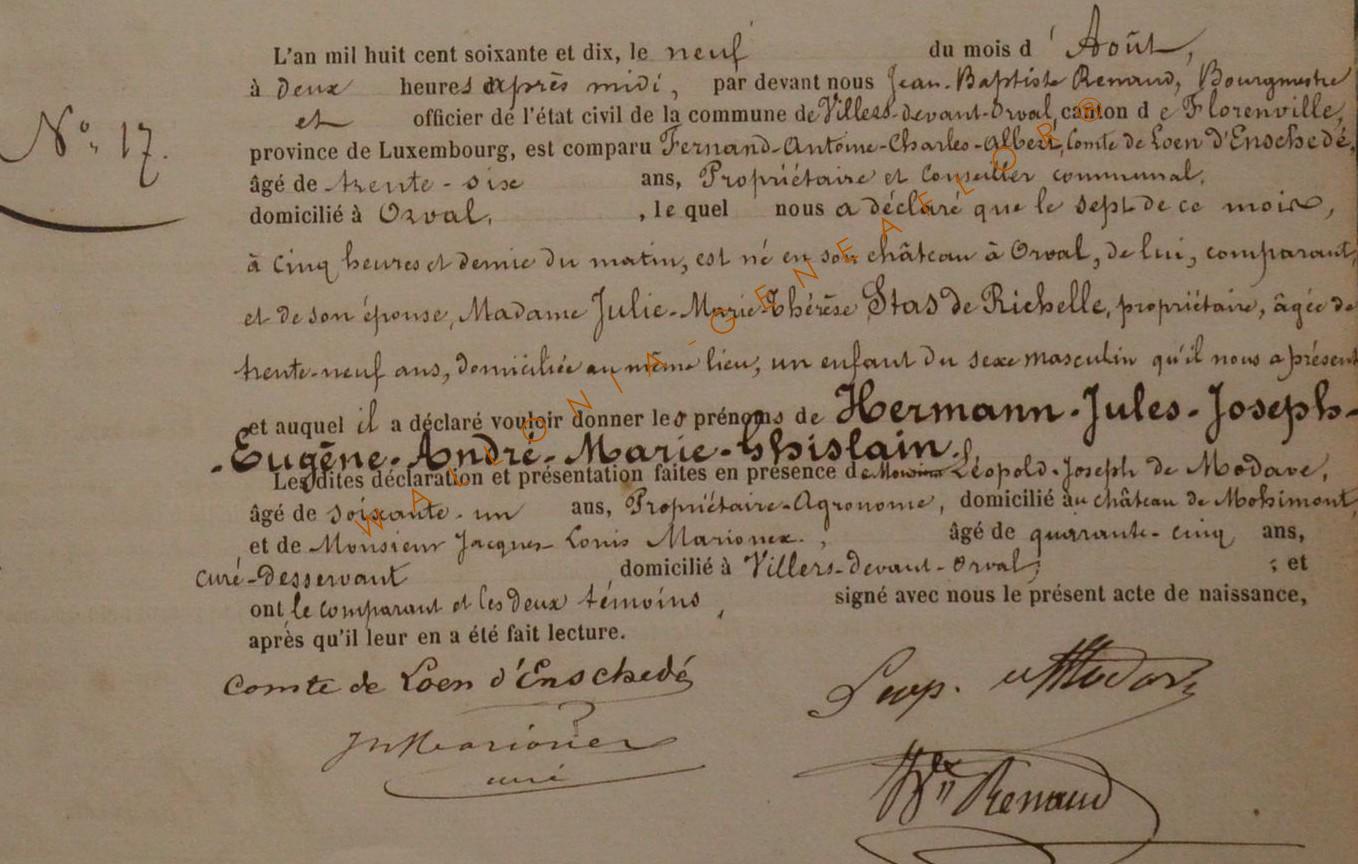 L'an mil huit cent soixante et dix, le neuf du mois d'Août,
à deux heures après midi, par devant nous Jean-Baptiste Renaud, Bourgmestre
et officier de l'état civil de la commune de Villers-devant-Orval, canton de Florenville,
N° 17.
province de Luxembourg, est comparu Fernand-Antoine-Charles-Albert, Comte de Loen d'Enschedé,
âgé de trente-six ans, Propriétaire et Conseiller communal,
domicilié à Orval, , lequel nous a déclaré que le sept de ce mois,
à cinq heures et demie du matin, est né en son château à Orval, de lui, comparant,
et de son épouse, Madame Julie-Marie-Thérèse Stas de Richelle, propriétaire, âgée de
trente-neuf ans, domiciliée au même lieu, un enfant du sexe masculin qu'il nous a présent
et auquel il a déclaré vouloir donner les prénoms de Hermann-Jules-Joseph-
-Eugène-André-Marie-Ghislain.
Lesdites déclaration et présentation faites en présence de Léopold-Joseph de Modave,
âgé de soixante-un ans, Propriétaire-Agronome, domicilié au château de Mohimont,
et de Monsieur Jacques Louis Marionex, âgé de quarante-cinq ans,
curé-desservant domicilié à Villers-devant-Orval, ; et
ont le comparant et les deux témoins, signé avec nous le présent acte de naissance,
après qu'il leur en a été fait lecture.
Comte de Loen d'Enschedé
Leop. de Modave
curé
Renaud
WALLONIA-GENEAFLOR®